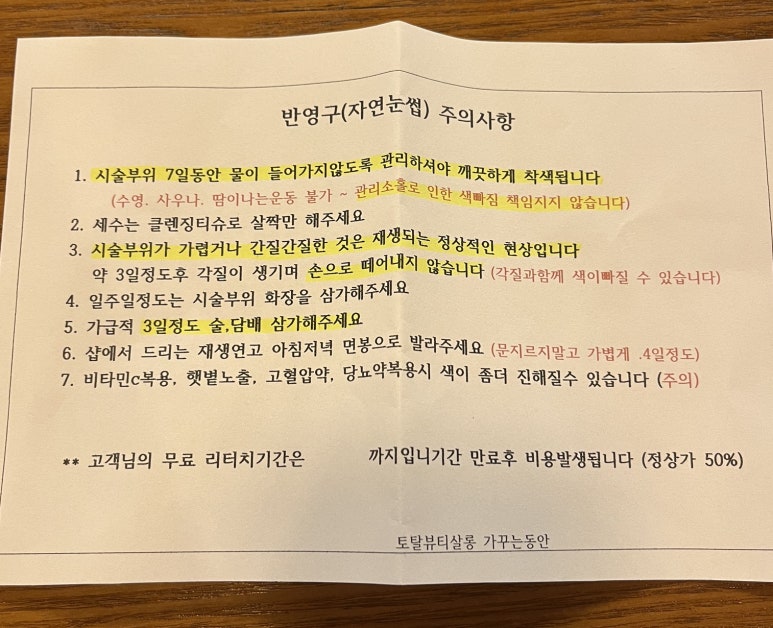 반영구(자연눈썹) 주의사항
1. 시술부위 7일동안 물이 들어가지않도록 관리하셔야 깨끗하게 착색됩니다
(수영. 사우나. 땀이나는운동 불가 ~ 관리소홀로 인한 색빠짐 책임지지 않습니다)
2. 세수는 클렌징티슈로 살짝만 해주세요
3. 시술부위가 가렵거나 간질간질한 것은 재생되는 정상적인 현상입니다
약 3일정도후 각질이 생기며 손으로 떼어내지 않습니다 (각질과함께 색이빠질 수 있습니다)
4. 일주일정도는 시술부위 화장을 삼가해주세요
5. 가급적 3일정도 술,담배 삼가해주세요
6. 샵에서 드리는 재생연고 아침저녁 면봉으로 발라주세요 (문지르지말고 가볍게 .4일정도)
7. 비타민c복용, 햇볕노출, 고혈압약, 당뇨약복용시 색이 좀더 진해질수 있습니다 (주의)
** 고객님의 무료 리터치기간은 까지입니기간 만료후 비용발생됩니다 (정상가 50%)
토탈뷰티살롱 가꾸는동안